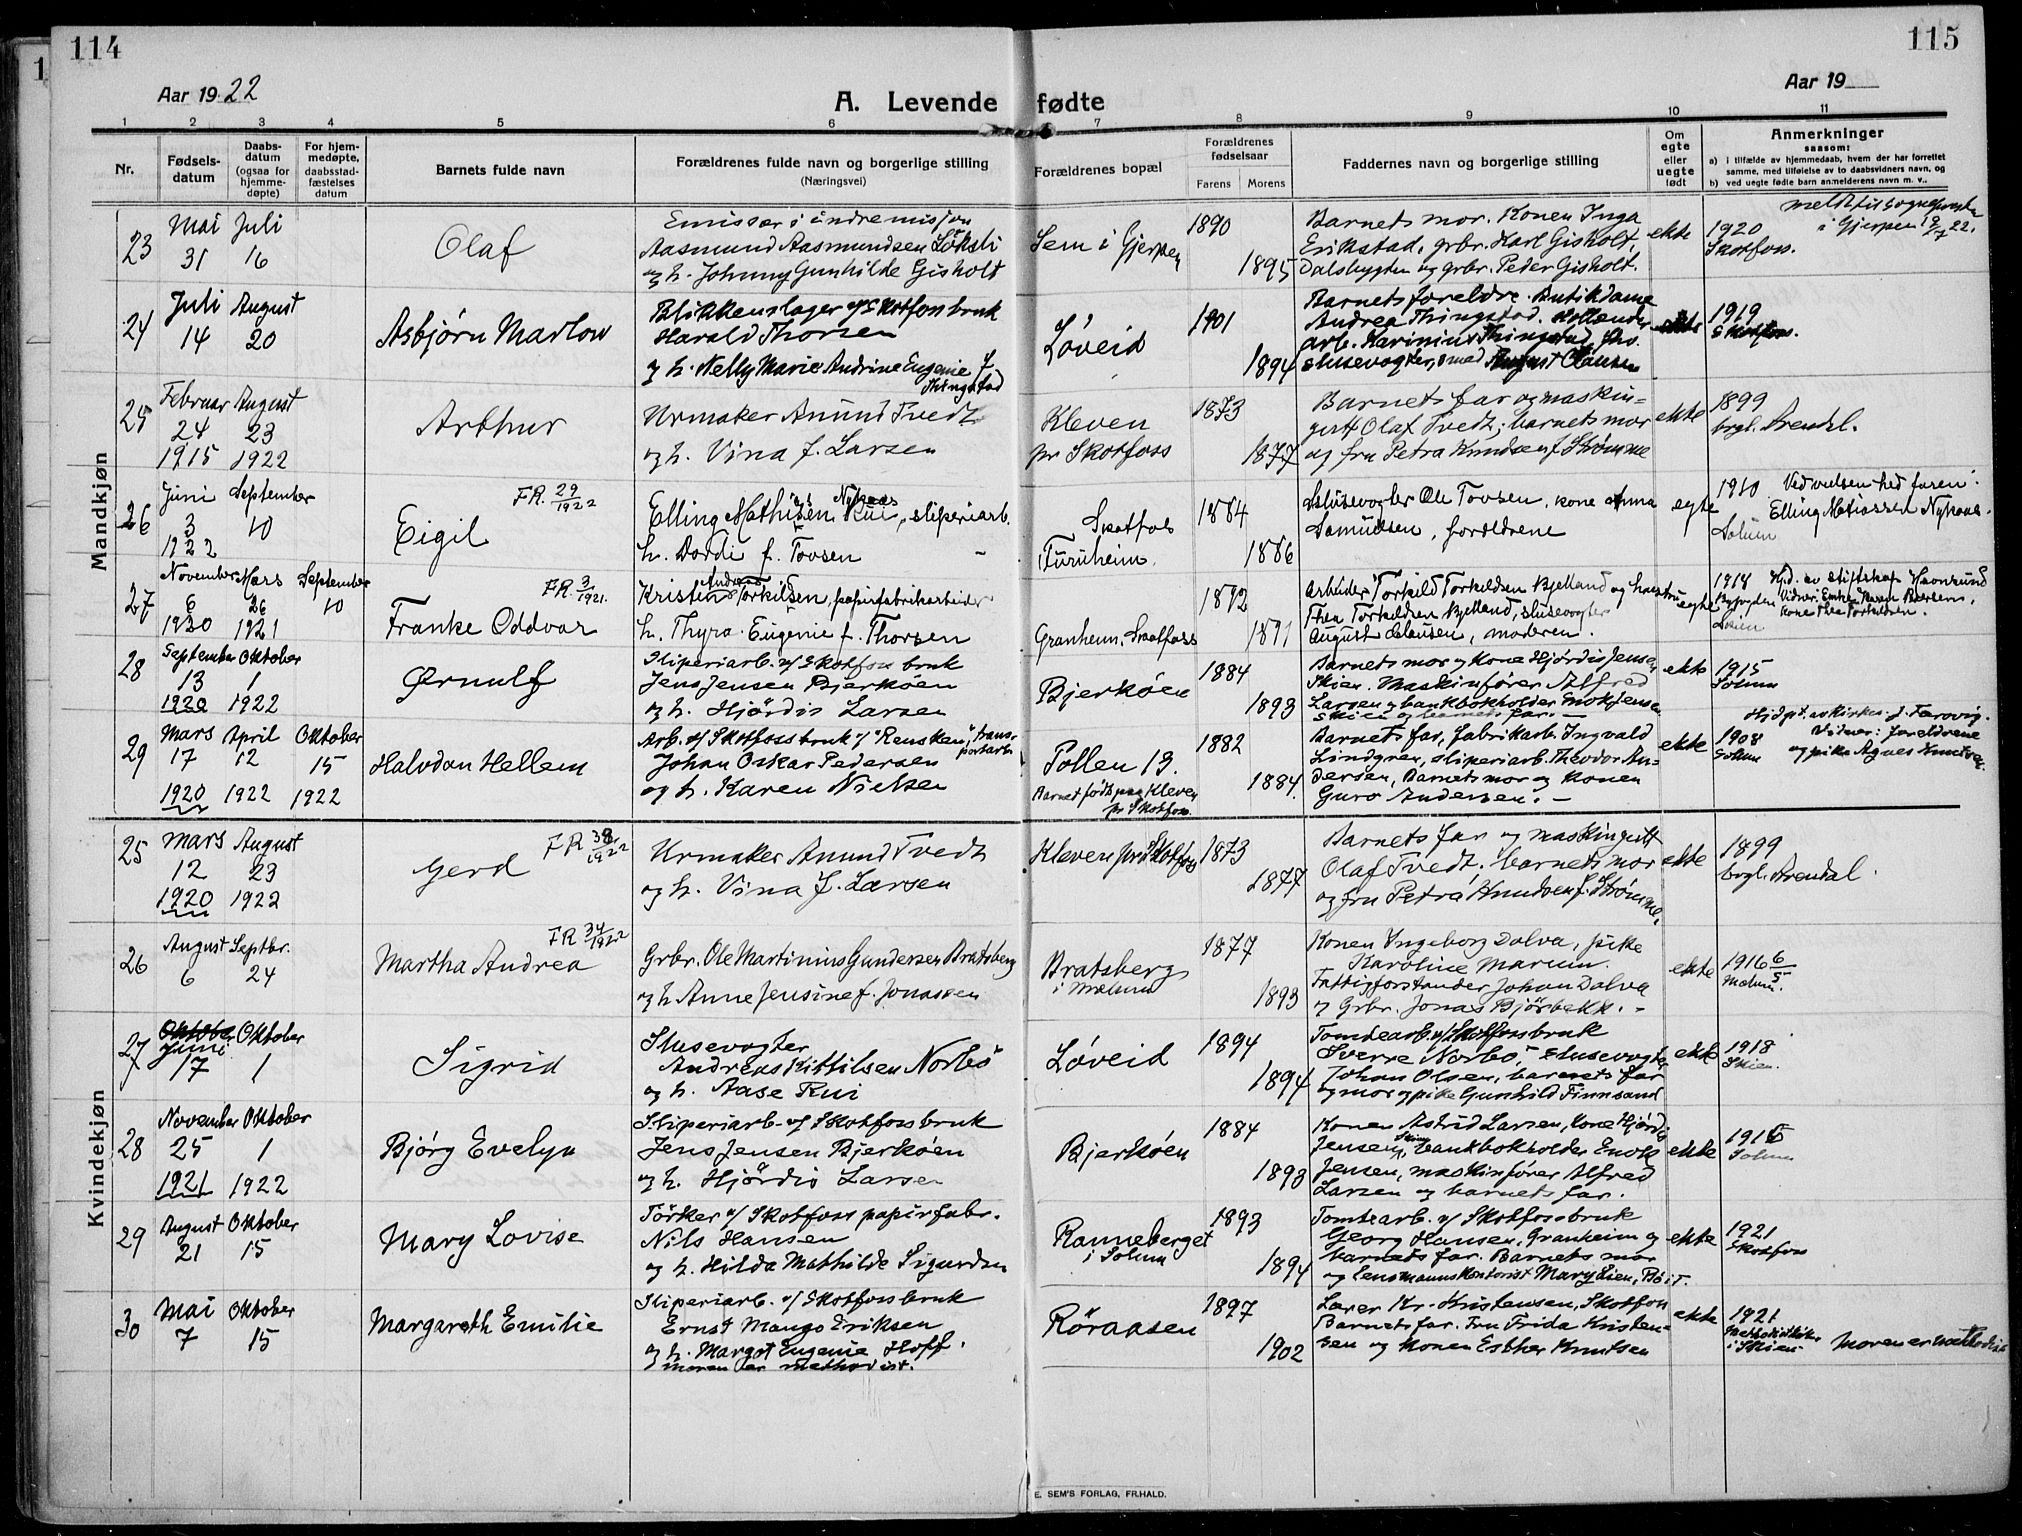 114
115
Aar 1922
Aar 19
A. Levende fødte
1 2 3 4 5 6 7 8 9 10 11
Nr.
Fødsels-
datum
Daabs-
datum
(ogsaa for
hjemme-
døpte)
For hjem-
medøpte,
daabsstad-
fæstelses
datum
Barnets fulde navn
Forældrenes fulde navn og borgerlige stilling
(Næringsvei)
Forældrenes bopæl
Forældrenes
fødselsaar
Farens Morens
Faddernes navn og borgerlige stilling
Om
egte
eller
uegte
født
Anmerkninger
saasom:
a) i tilfælde av hjemmedaab, hvem der har forrettet
samme, med tilføielse av to daabsvidners navn, og
b) ved uegte fødte barn anmelderens navn m. v..
Mandkjøn
23
Mai Juli
31 16
Olaf
Emissær i indremisjon
Aasmund Aasmundsen Löksli
og h. Johnny Gunhilde Gisholt
Sem i Gjerpen
1890
1895
Barnets mor. Konen Inga
Erikstad, grbr. Karl Gisholt,
Dalsbygten og grbr. Peder Gisholt.
ekte
1920
Skotfoss.
meldt til sognepresten
i Gjerpen 19/7 22.
24
Juli August
14 20
Asbjørn Marlow
Blikkenslager v/ Skotfoss bruk
Harald Thorsen
og h. Nelly Marie Andrine Eugenie f.
Thingstad
Løveid
1901
1894
Barnets foreldre. Butikdame
Andrea Thingstad. Hollender
arb. Karinius Thingstad, fhv.
slusevogter, smed August Clausen
ekte
1919
Skotfoss.
25
Februar August
24 23
1915 1922
Arthur
Urmaker Anund Tvedt
og h. Vina f. Larsen
Kleven
pr Skotfoss
1873
1877
Barnets far og maskin=
gutt Olaf Tvedt; barnets mor
og fru Petra Knudsen f. Strømme
ekte
1899
brgl. Arendal.
26
Juni September
3 10
1922
FR. 29/1922
Eigil
Elling Mathisen Rui, sliperiarb.
Nykaas
h. Dordi f. Tovsen
Skotfos
Furuheim.
1884
1886
Slusevogter Ole Tovsen, kone Anna
Samuelsen, foreldrene
egte
1910
Solum
Ved vielsen hed faren:
Elling Matiassen Nykaas.
27
November Mars September
6 26 10
1920 1921
FR. 3/1921.
Franke Oddvar
Kristen Andreas Torkilsen, papirfabrikarbeider
h. Thyra Eugenie f. Thorsen
Granheim, Skotfoss
1892
1891
Arbeider Torkild Torkildsen Bjelland og hustru
Thea Torkildsen Bjelland, slusevogter
August Clausen, moderen.
egte
1914
Skien
28
September Oktober
13 1
1920 1922
Ørnulf
Sliperiarb. v/ Skotfoss bruk
Jens Jensen Bjerköen
og h. Hjördis Larsen
Bjerköen
1884
1893
Barnets mor og kone Hjørdis Jensen
Skien. Maskinfører Alfred
Larsen og bankbokholder Enok Jensen
Skien og barnets far.—
ekte
1915
Solum
29
Mars April Oktober
17 12 15
1920 1922 1922
Halvdan Hellem
Arb. v/ Skotfoss bruk v/ "Rensken", trans=
portarb.
Johan Oskar Pedersen
og h. Karen Nielsen
Pollen 13.
Barnet født paa Kleven
pr Skotfoss.
1882
1884.
Barnets far, fabrikarb. Ingvald
Lindgren, sliperiarb. Theodor An-
dersen, Barnets mor og konen
Guro Andersen.—
ekte
1908
Solum
Hjdpt. av kirkes. J. Farovig.
Vidner: foreldrene
og pike Agnes Knutsen.
Kvindekjøn
25
Mars August
12 23
1920 1922
FR 38/1922
Gerd
Urmaker Anund Tvedt
og h. Vina f. Larsen
Kleven pr Skotfoss
1873
1877
Barnets far og maskingutt
Olaf Tvedt, barnets mor
og fru Petra Knudsen f. Strømme.
ekte
1899
brgl. Arendal.
26
August Septbr.
6 24
FR 34/1922
Martha Andrea
Grbr. Ole Martinius Gundersen Bratsberg
og h. Anne Jensine f. Jonassen
Bratsberg
i Melum
1877
1893
Konen Ingeborg Dalva, pike
Karoline Marum.
Fattigforstander Johan Dalva
og Grbr. Jonas Bjørbekk.—
ekte
1916 6/5
Melum.
27
Oktober Oktober
Juni
17 1
Sigrid
Slusevogter
Andreas Kittilsen Norbö
og h. Aase Rui
Løveid
1894
1894
Tomtearb. v/ Skotfossbruk
Sverre Norbö, slusevogter
Johan Olsen, barnets far
og mor og pike Gunhild Finnsand
ekte
1918
Skien.
28
November Oktober
25 1
1921 1922
Bjørg Evelyn
Sliperiarb. v/ Skotfossbruk
Jens Jensen Bjerköen
og h. Hjördis Larsen
Bjerköen
1884
1893
Konen Astrid Larsen, Kone Hjördis
Jensen, Skien, bankbokholder Enok
Jensen, maskinfører Alfred
Larsen og barnets far.
ekte
1915
Solum
29
August Oktober
21 15
Mary Lovise
Törker v/ Skotfoss papirfabr.
Nils Hansen
og h. Hilda Mathilde Sigurdsen
Ranneberget
i Solum
1893
1894
Tomtearb. v/ Skotfossbruk
Georg Hansen, Granheim og
barnets far. Barnets mor
og lensmannskontorist Mary Lien, Bö i T.
ekte
1921
Skotfoss
30
Mai Oktober
7 15
Margareth Emilie
Sliperiarb. v/ Skotfossbruk
Ernst Mango Eriksen
og h. Margot Eugenie Hoff.
moren er methodist.
Röraasen
1897
1902
Lærer Kr. Kristensen, Skotfoss
Barnets far. Fru Frida Kristen-
sen og konen Esther Knutsen
ekte
1921
Methodistkirken
i Skien
Moren er methodist
E. SEM'S FORLAG, FR.HALD.